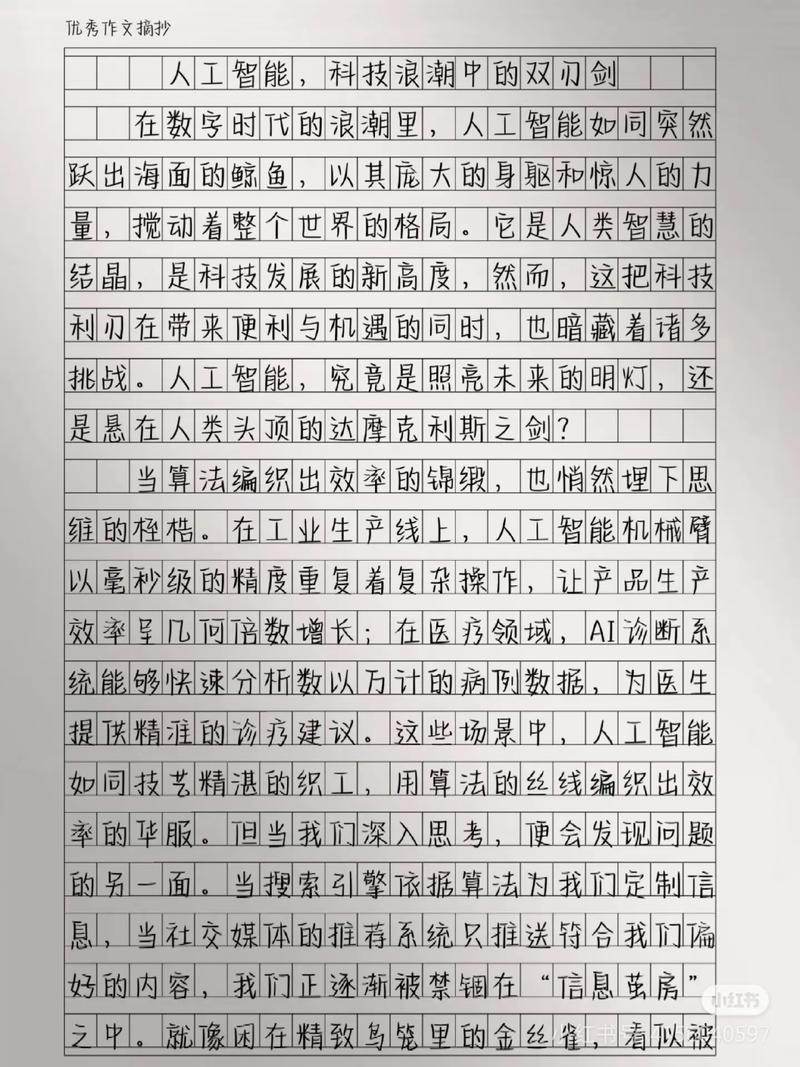 优秀作文摘抄
人工智能，科技浪潮中的双刃剑
在数字时代的浪潮里，人工智能如同突然
跃出海面的鲸鱼，以其庞大的身躯和惊人的力
量，搅动着整个世界的格局。它是人类智慧的
结晶，是科技发展的新高度，然而，这把科技
利刃在带来便利与机遇的同时，也暗藏着诸多
挑战。人工智能，究竟是照亮未来的明灯，还
是悬在人类头顶的达摩克利斯之剑？
当算法编织出效率的锦缎，也悄然埋下思
维的桎梏。在工业生产线上，人工智能机械臂
以毫秒级的精度重复着复杂操作，让产品生产
效率呈几何倍数增长；在医疗领域，AI诊断系
统能够快速分析数以万计的病例数据，为医生
提供精准的诊疗建议。这些场景中，人工智能
如同技艺精湛的织工，用算法的丝线编织出效
率的华服。但当我们深入思考，便会发现问题
的另一面。当搜索引擎依据算法为我们定制信
息，当社交媒体的推荐系统只推送符合我们偏
好的内容，我们正逐渐被禁锢在“信息茧房”
之中。就像困在精致鸟笼里的金丝雀，看似被
小红书